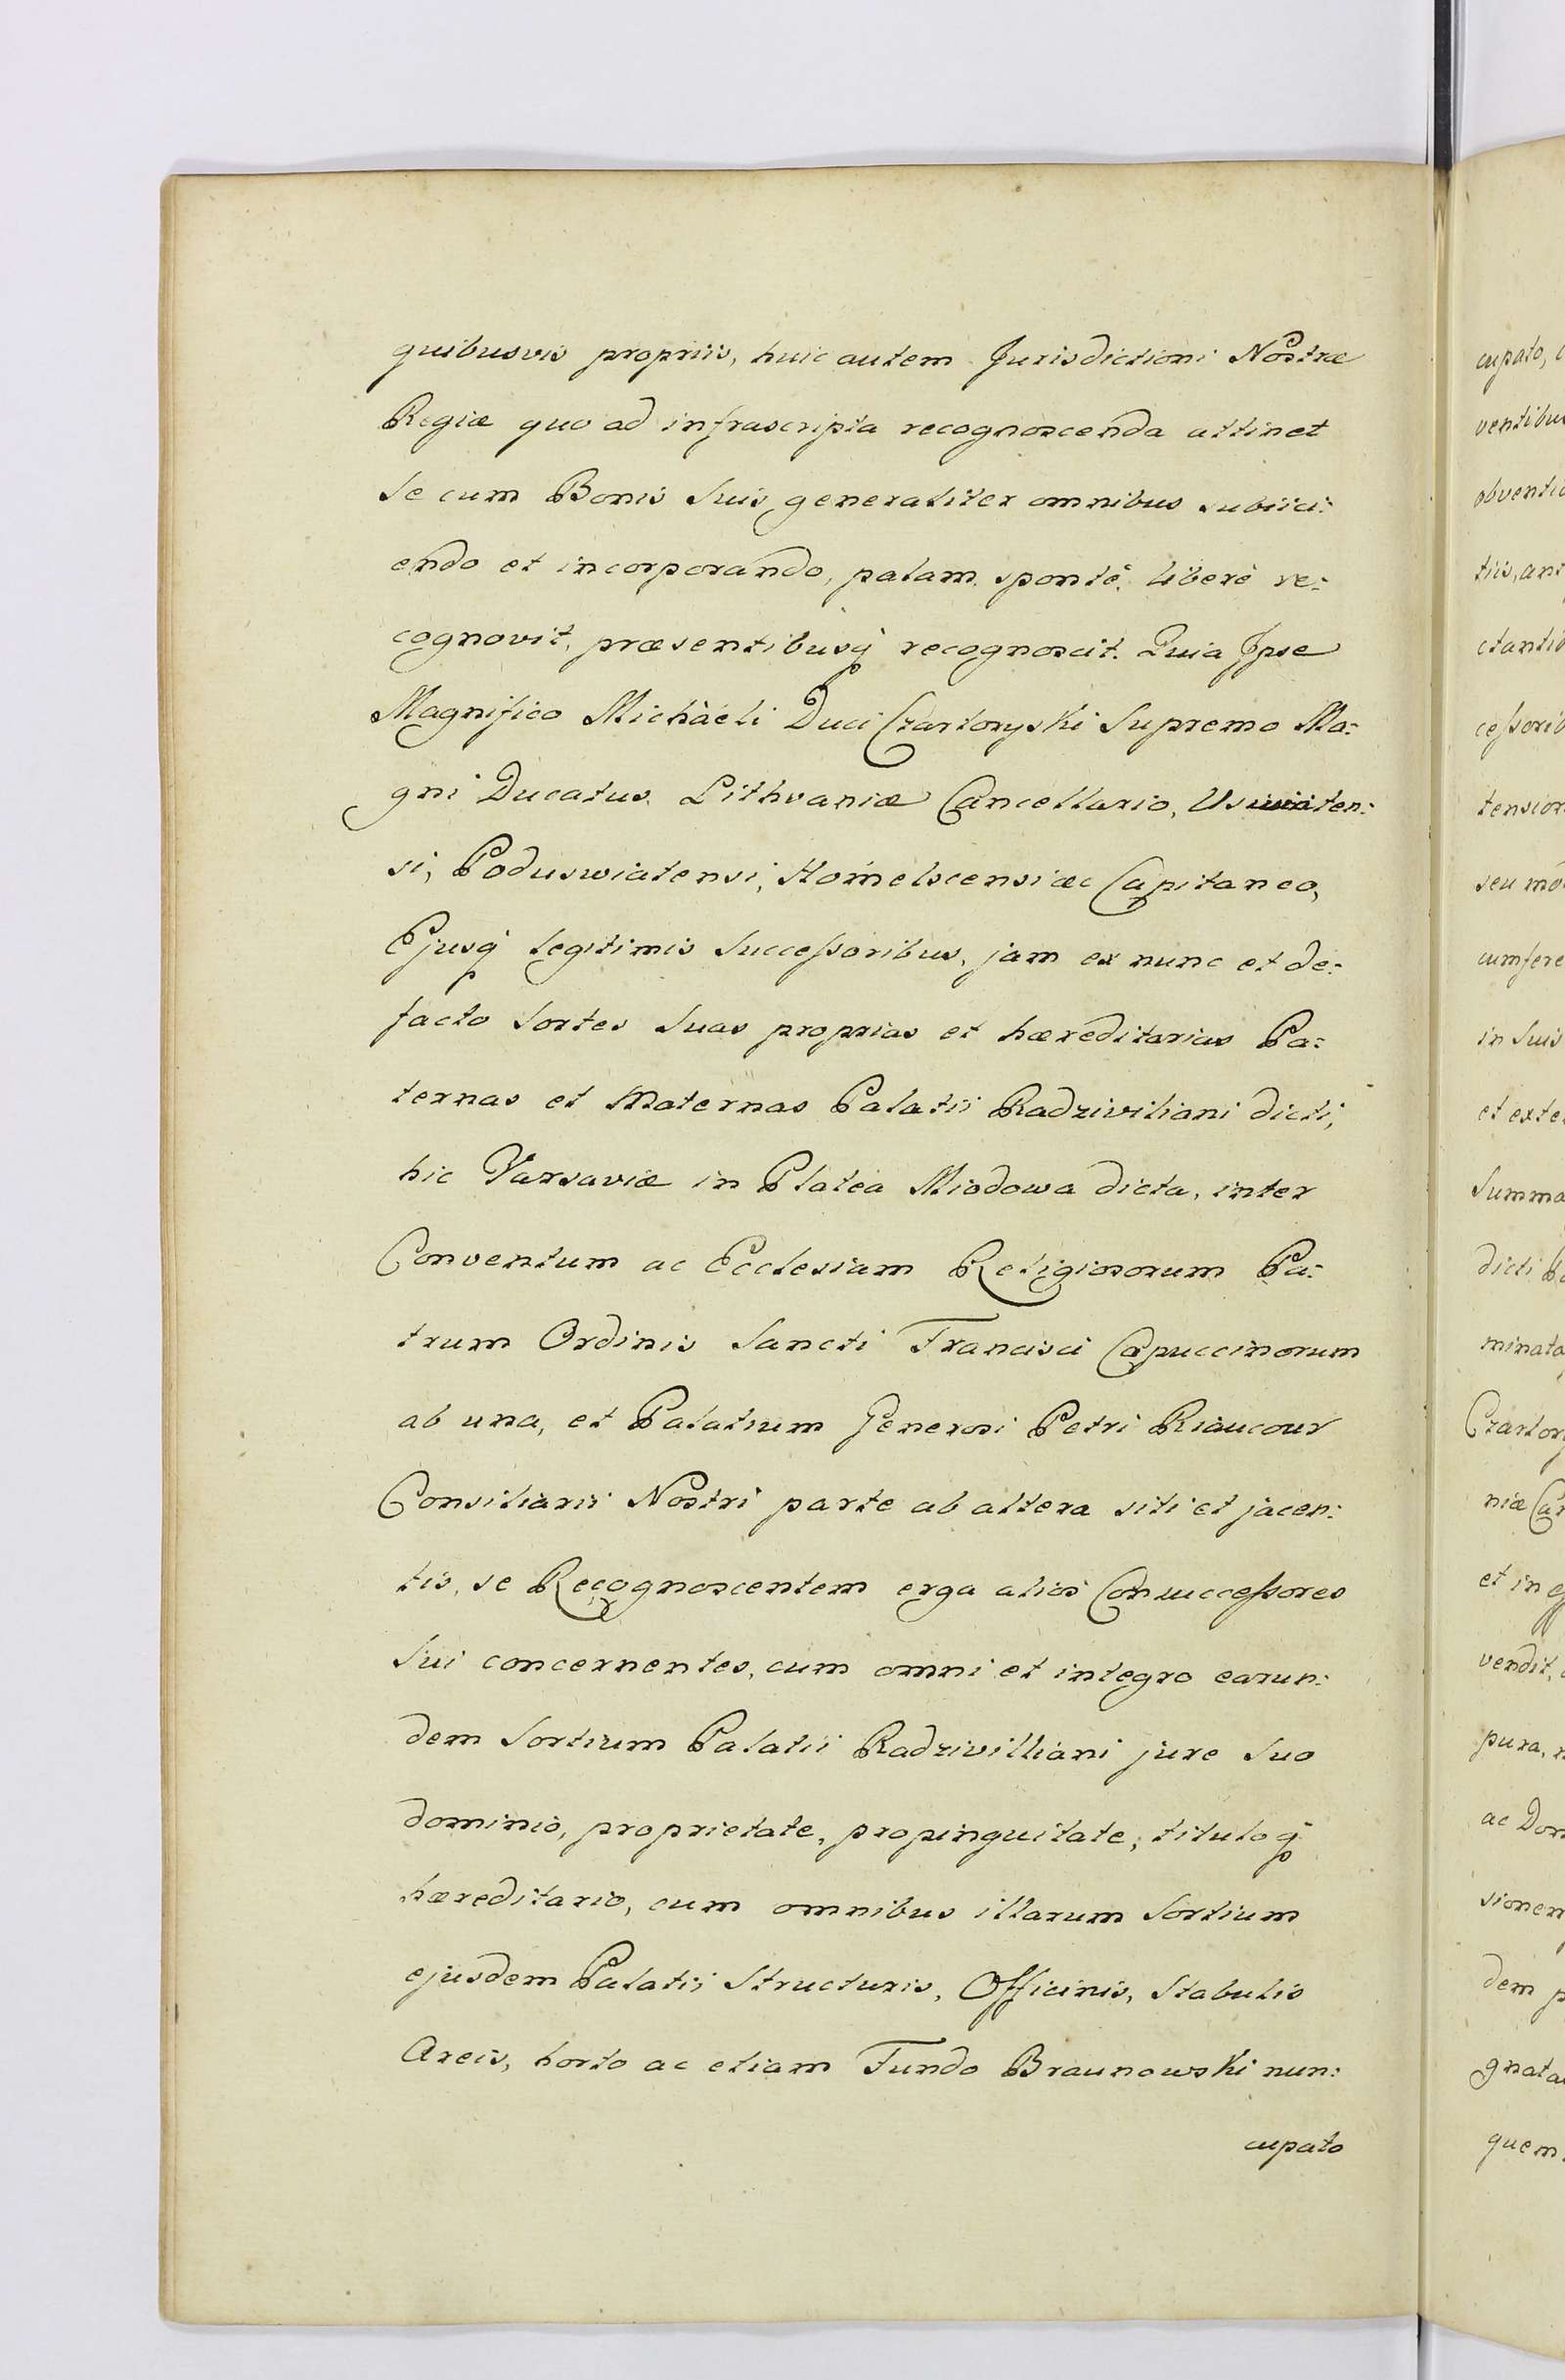 quibusvis propriis, huic autem Jurisdictioni Nostræ
Regiæ quo ad infrascripta recognoscenda attinet
Se cum Bonis Suis generaliter omnibus subiici:
endo et incorporando, palam, spontè, liberè re:
cognovit, præsentibusq́ recognoscit. Quia Jpse
Magnifico Michàeli Duci Czartoryski Supremo Ma:
gni Ducatus Lithvaniæ Cancellario, Uswiaten:
si, Poduswiatensi, Homelscensi &c Capitaneo,
Ejusq́ legitimis Successoribus, jam ex nunc et de:
facto Sortes Suas proprias et hæreditarias Pa:
ternas et Maternas Palatii Radziviliani dicti,
hic Varsaviæ in Platea Miodowa dicta, inter
Conventum ac Ecclesiam Religiosorum Pa:
trum Ordinis Sancti Francisci Capuccinorum
ab una, et Palatium Generosi Petri Riaucour
Consiliarii Nostri parte ab altera siti et jacen:
tis, se Recognoscentem erga alios Consuccessores
Sui concernentes, cum omni et integro earun:
dem Sortium Palatii Radzivilliani jure Suo
dominio, proprietate, propinguitate, tituloq́
hæreditario, cum omnibus illarum Sortium
ejusdem Palatii Structuris, Officinis, Stabulis
Areis, horto ac etiam Fundo Braunowski nun:
cupato
cupato,
ventibus
obventio
tiis, an
ctantib
cessorib
tension
seu mo
cumfere
in Suis
et exte
Summa
dicti Pa
minata
Czartor
niæ Ca
et in
vendit,
pura,
ac Don
sionem
dem p
gnata
quem